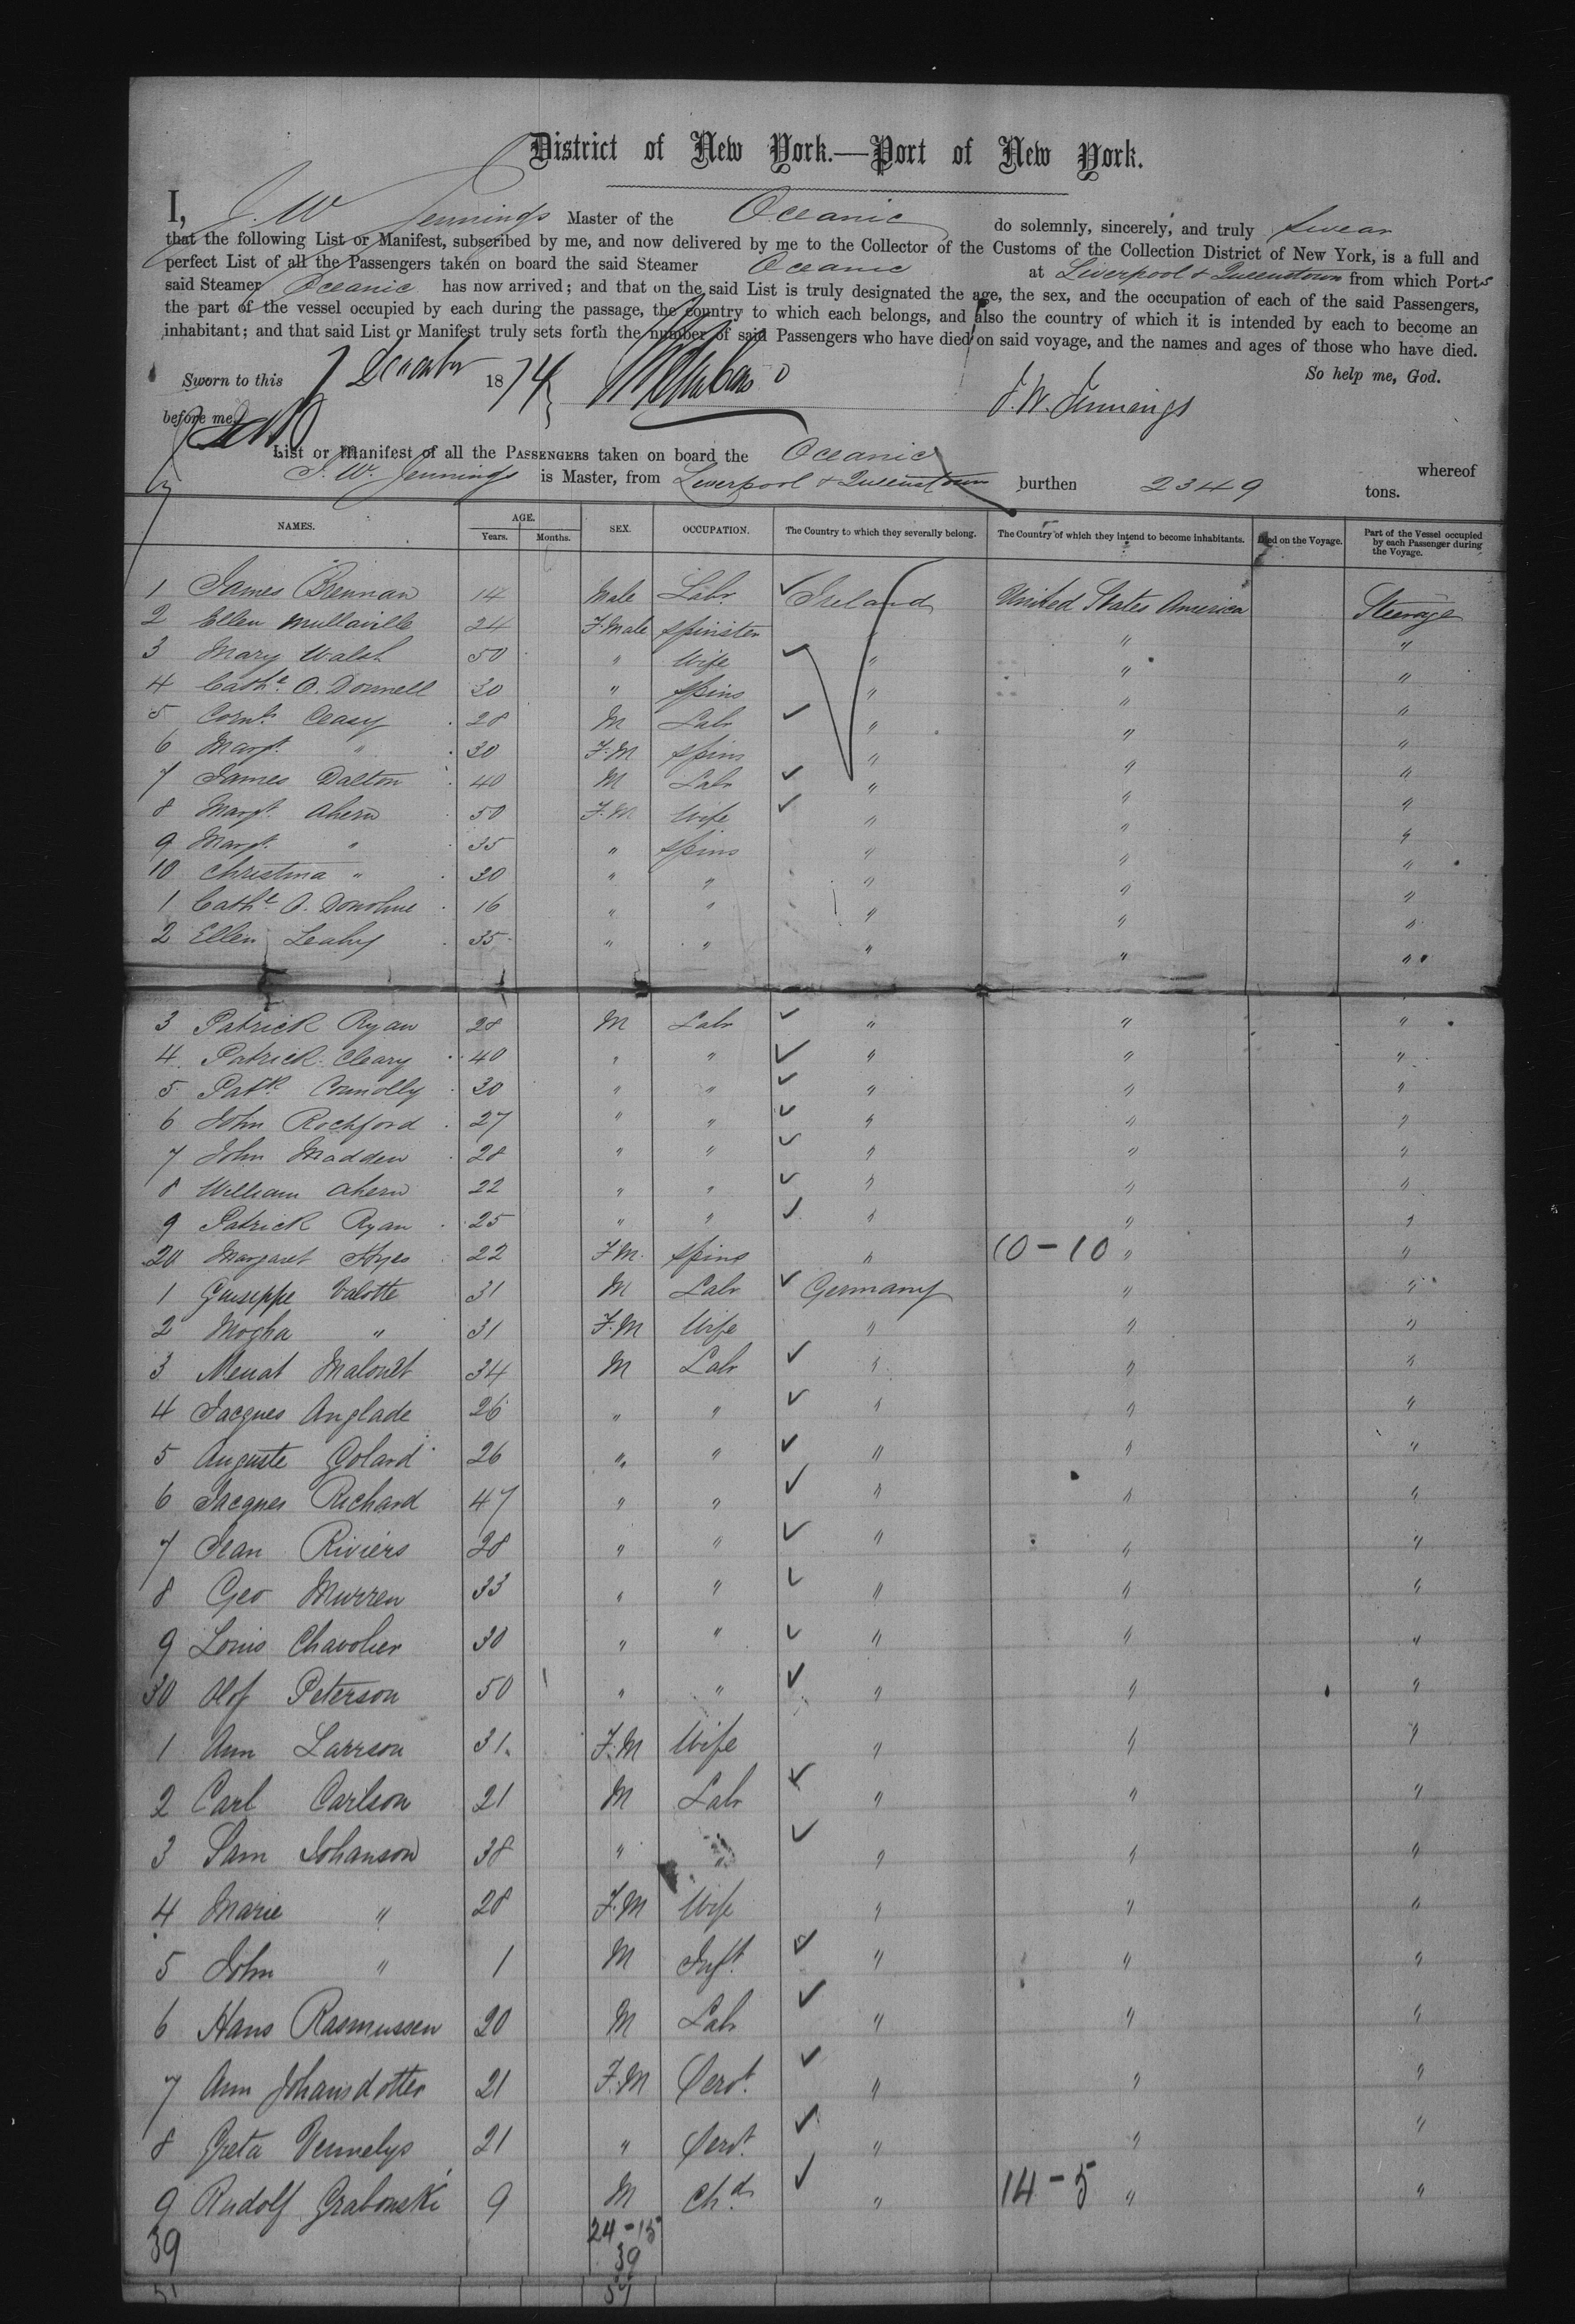 District of New York.—Port of New York.
I, J. W. Jennings Master of the Oceanic do solemnly, sincerely, and truly swear
that the following List or Manifest, subscribed by me, and now delivered by me to the Collector of the Customs of the Collection District of New York, is a full and
perfect List of all the Passengers taken on board the said Steamer Oceanic at Liverpool & Queenstown from which Ports
said Steamer Oceanic has now arrived; and that on the said List is truly designated the age, the sex, and the occupation of each of the said Passengers,
the part of the vessel occupied by each during the passage, the country to which each belongs, and also the country of which it is intended by each to become an
inhabitant; and that said List or Manifest truly sets forth the number of said Passengers who have died on said voyage, and the names and ages of those who have died.
So help me, God.
Sworn to this 7 December 1874
before me J. W. Jennings
List or Manifest of all the PASSENGERS taken on board the Oceanic whereof
J. W. Jennings is Master, from Liverpool & Queenstown burthen 2349 tons.
NAMES. AGE. Years. Months. SEX. OCCUPATION. The Country to which they severally belong. The Country of which they intend to become inhabitants. Died on the Voyage. Part of the Vessel occupied by each Passenger during the Voyage.
1 James Brennan 14 Male Labr. Ireland United States America Steerage
2 Ellen Mullaville 24 F.Male Spinster " " "
3 Mary Walsh 50 " Wife " " "
4 Cathe. O. Donnell 30 " Spins " " "
5 Corns. Ceasy 28 M Labr " " "
6 Margt. " 30 F.M Spins " " "
7 James Dalton 40 M Labr " " "
8 Margt. Ahern 50 F.M Wife " " "
9 Margt. " 35 " Spins " " "
10 Christina " 30 " " " " "
1 Cathe. O. Donohue 16 " " " " "
2 Ellen Leahy 35 " " " " "
3 Patrick Ryan 28 M Labr " " "
4 Patrick Cleary 40 " " " " "
5 Patk. Connolly 30 " " " " "
6 John Rochford 27 " " " " "
7 John Madden 28 " " " " "
8 William Ahern 22 " " " " "
9 Patrick Ryan 25 " " " " "
20 Margaret 22 F.M. Spins " 10 - 10 " "
1 Guiseppe Valotte 31 M Labr Germany " "
2 Mogha " 31 F.M Wife " " "
3 Menat Malouet 34 M Labr " " "
4 Jacques Anglade 26 " " " " "
5 Auguste Golard 26 " " " " "
6 Jacques Richard 47 " " " " "
7 Jean Riviers 28 " " " " "
8 Geo Murren 33 " " " " "
9 Louis Chavolier 30 " " " " "
30 Olof Peterson 50 " " " " "
1 Ann Larrson 31 F.M Wife " " "
2 Carl Carlson 21 M Labr " " "
3 Sam Johanson 38 " " " " "
4 Marie " 28 F.M Wife " " "
5 John " 1 M Inft. " " "
6 Hans Rasmussen 20 M Labr " " "
7 Ann Johansdotter 21 F.M Servt. " " "
8 Greta Vennelys 21 " Servt. " " "
9 Rudolf Grabonski 9 M Chd. " 14 - 5 " "
39 24 - 15
39